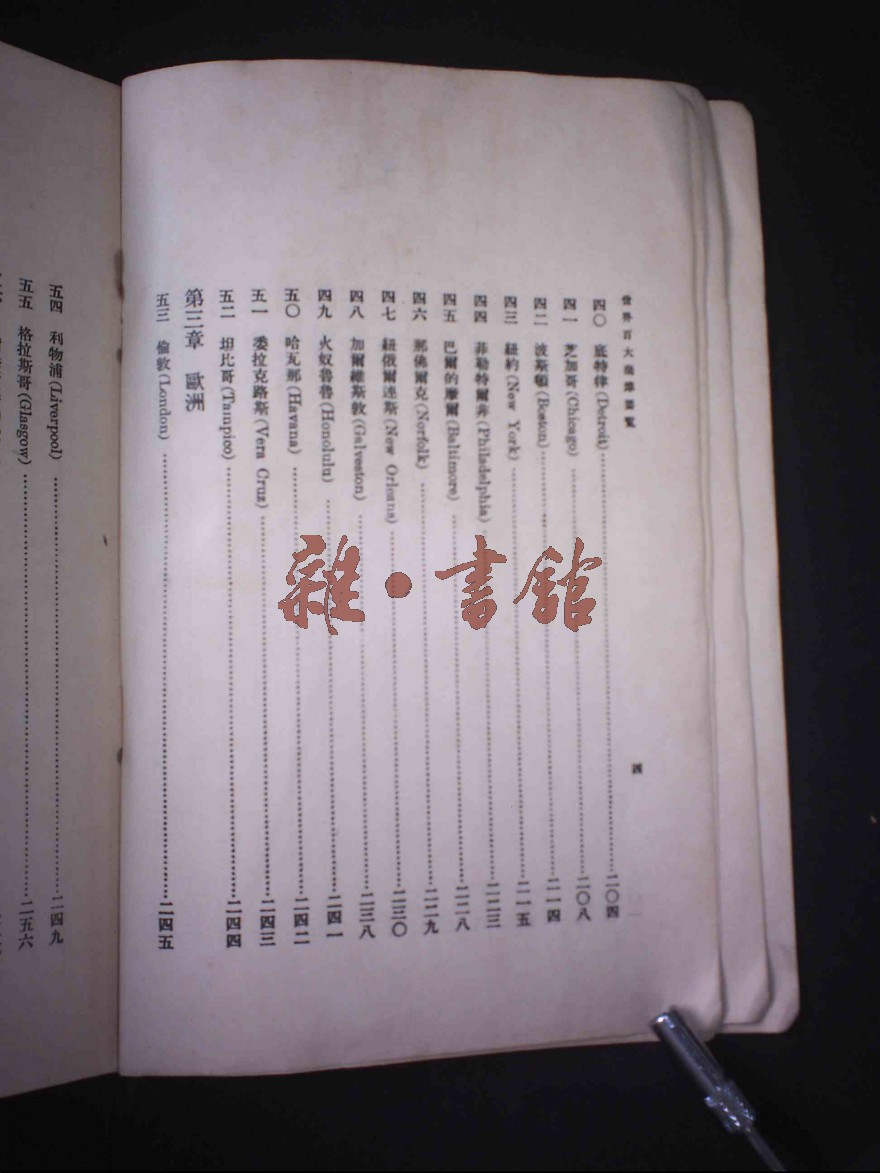 世界百大商埠要覽
四
四〇 底特律(Detroit)……二〇四
四一 芝加哥(Chicago)……二〇八
四二 波斯頓(Boston)……二一四
四三 紐約(New York)……二一五
四四 菲勒特爾弗(Philadelphia)……二二三
四五 巴爾的摩爾(Baltimore)……二二八
四六 那佛爾克(Norfolk)……二二九
四七 紐俄爾連斯(New Orleans)……二三〇
四八 加爾維斯敦(Galveston)……二三八
四九 火奴魯魯(Honolulu)……二四一
五〇 哈瓦那(Havana)……二四二
五一 委拉克路斯(Vera Cruz)……二四三
五二 坦比哥(Tampico)……二四四
第三章 歐洲
五三 倫敦(London)……二四五
五四 利物浦(Liverpool)……二四九
五五 格拉斯哥(Glasgow)……二五六
雜·書館